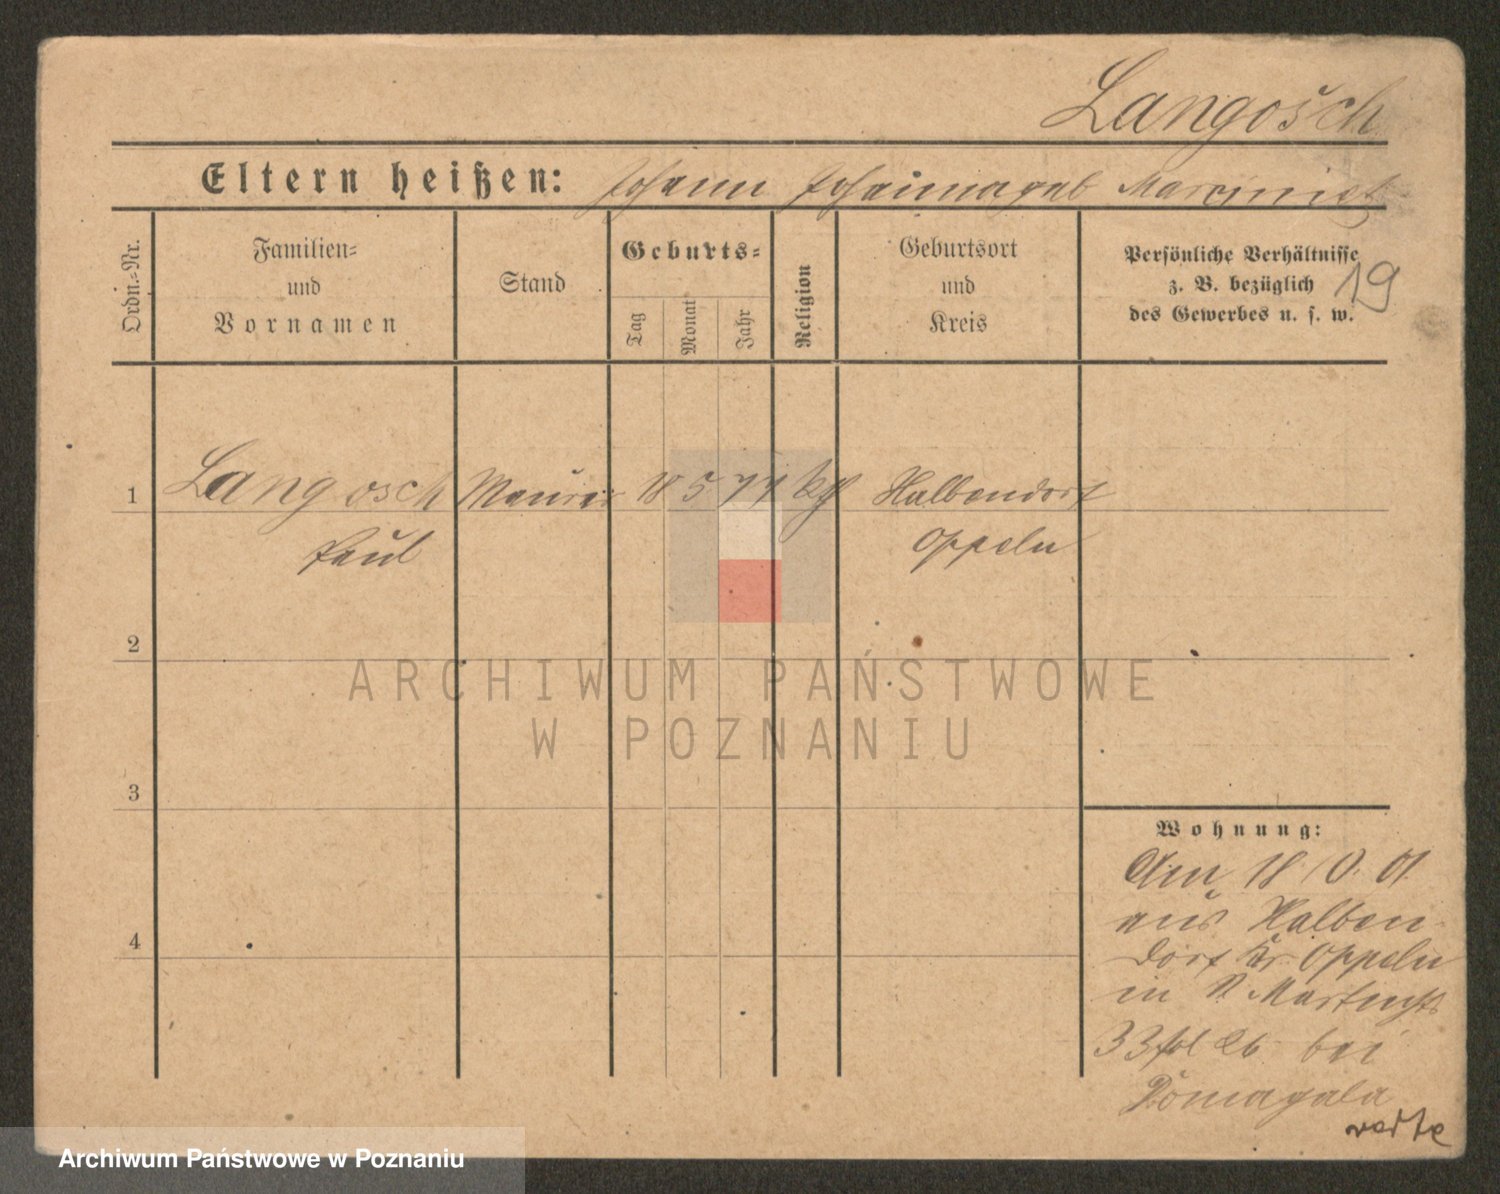 Langosch
Eltern heißen: Johann
Ordn.-Nr.
Familien-
und
Vornamen
Stand
Geburts-
Tag
Monat
Jahr
Religion
Geburtsort
und
Kreis
Persönliche Verhältnisse
z. B. bezüglich
des Gewerbes u. s. w.
19
1 Langosch Maurer 18 5 77 kth Halbendorf
Paul Oppeln
2
3
4
Wohnung:
Am 18 01
aus Halben
dorf Kr. Oppeln
in
33 bei
Domagala
verte
ARCHIWUM PAŃSTWOWE
W POZNANIU
Archiwum Państwowe w Poznaniu